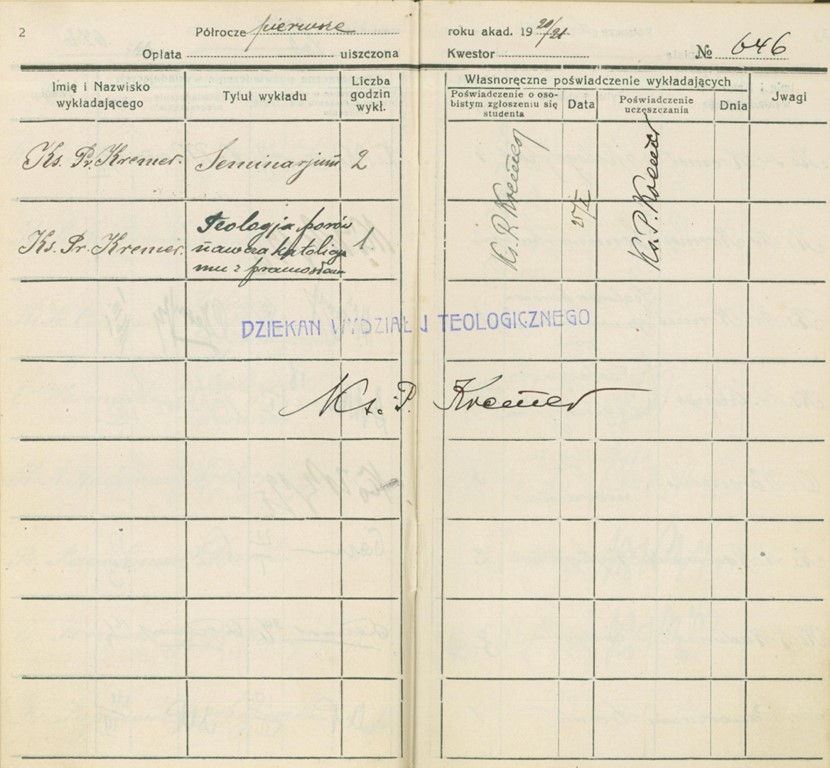 2 Półrocze pierwsze roku akad. 19 20/21
Opłata uiszczona Kwestor № 646
Imię i Nazwisko wykładającego
Tytuł wykładu
Liczba godzin wykł.
Własnoręczne poświadczenie wykładających
Poświadczenie o osobistym zgłoszeniu się studenta
Data
Poświadczenie uczęszczania
Dnia
Jwagi
Ks. Pr. Kremer. Seminarjum 2
Ks. Pr. Kremer. Teologja porów
nawcza katolicyz
mu z prawosław 1
Ks. P. Kremer
27/X
Ks. P. Kremer
DZIEKAN WYDZIAŁU TEOLOGICZNEGO
Ks. P. Kremer